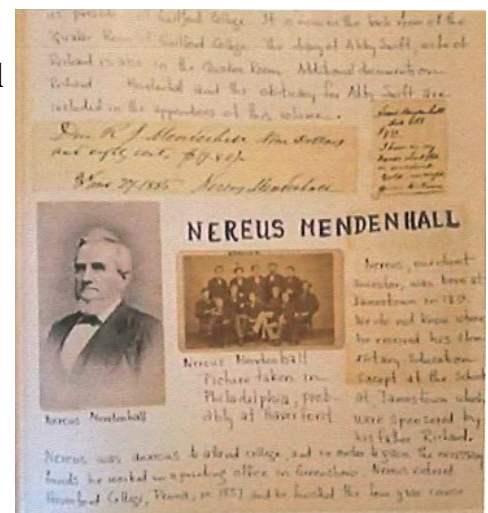 its presents of Guilford College. It is now in the back room of the
Quaker Room of Guilford College. The diary of Abby Swift, wife of
Richard is also in the Quaker Room. Additional documents on
Richard Mendenhall and the obituary for Abby Swift are
included in the appendices of this volume.
Due R J Mendenhall Nine Dollars
and eighty cents, $9.80
Nereus Mendenhall
NEREUS MENDENHALL
Nereus Mendenhall
Nereus Mendenhall
Picture taken in
Philadelphia, prob-
ably at Haverford
Nereus, our direct
ancestor, was born at
Jamestown in
We do not know where
he received his elem-
entary education
except at the School
at Jamestown which
were sponsored by
his father Richard.
Nereus was anxious to attend college, and in order to gain the necessary
funds he worked in a printing office in Greensboro. Nereus entered
Haverford College, Penna, in 1837 and he finished the four year course